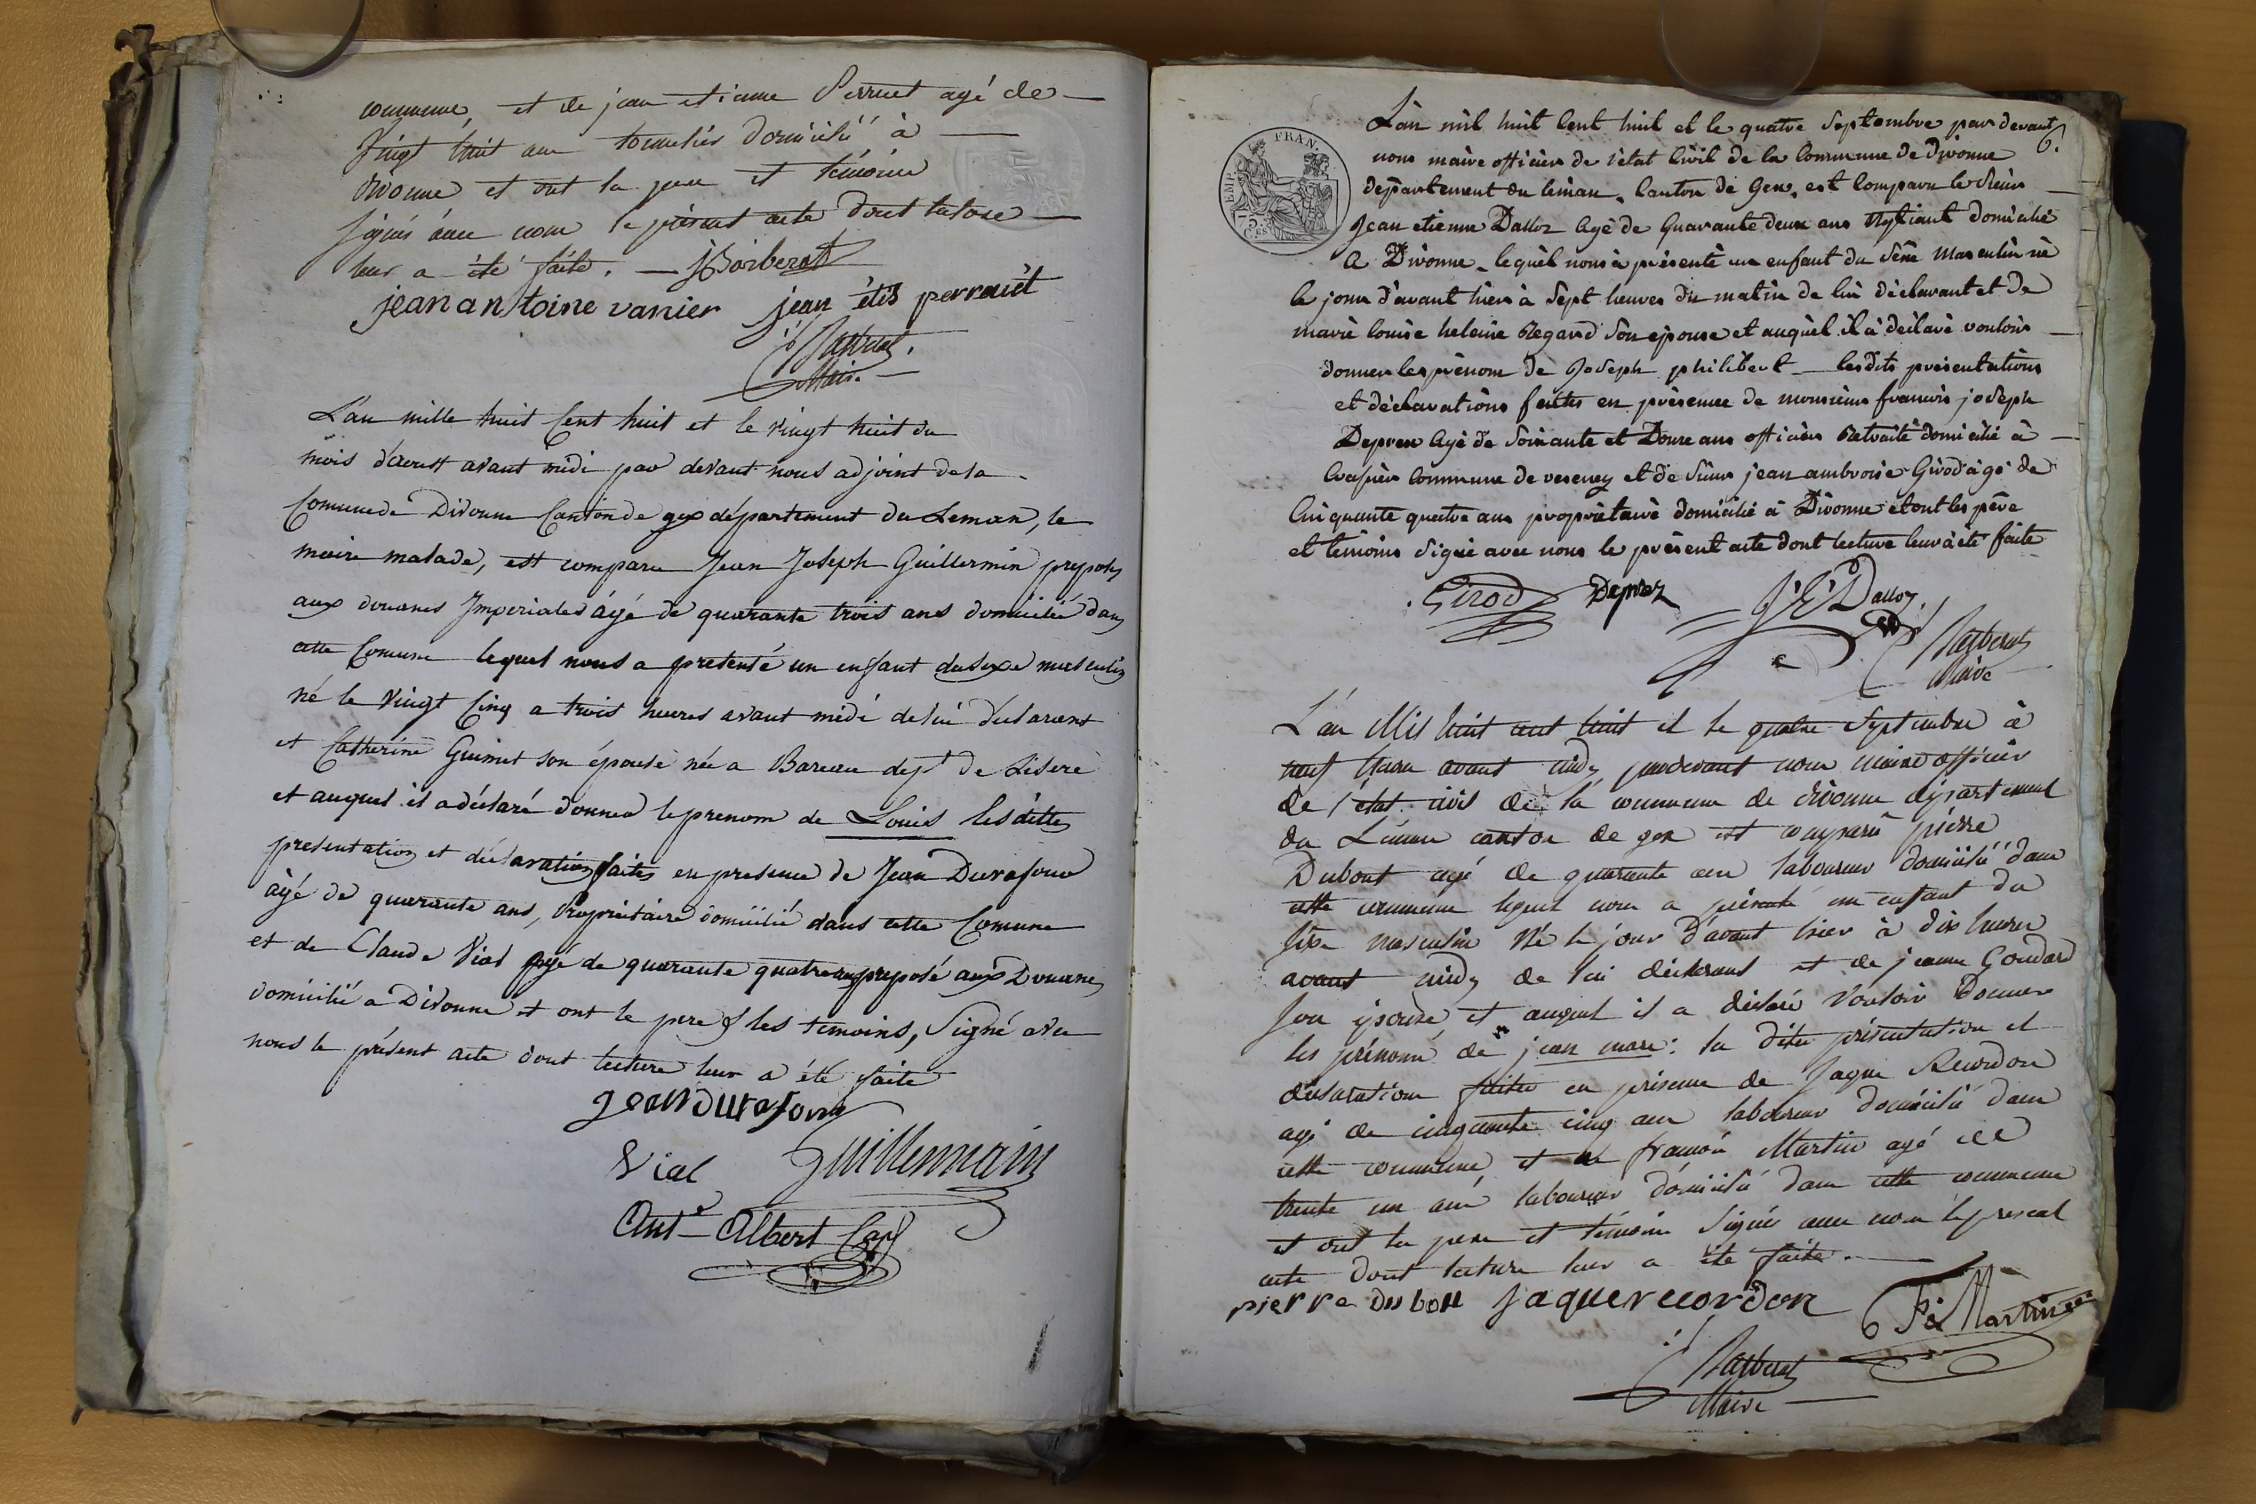 commune, et de jean etienne Perruet agé de
vingt huit ans domicilié à
divonne et ont le pere et témoins
signés avec nous le présent acte dont lecture
leur a été faite. JBarberat
jean antoine vanier jean perrauet
Barberat
Maire
L'an mille huit Cent huit et le vingt huit du
mois d'aoust avant midi par devant nous adjoint de la
Comune de Divonne Canton de gex département du Leman, le
maire malade, est comparu Jean Joseph Guillermin preposé
aux douanes Imperiales âgé de quarante trois ans domicilié dans
cette Comune lequel nous a presenté un enfant du sexe masculin
né le vingt Cinq a trois heures avant midi de lui déclarant
et Catherine Guimet son épouse née a Bareau dept de Lisere
et auquel il a déclaré donner le prenom de Louis lesdittes
presentation et déclaration faites en presence de Jean Durafour
âgé de quarante ans, Propriétaire domicilié dans cette Comune
et de Claude Vial agé de quarante quatre ans preposé aux Douanes
domicilié a Divonne et ont le pere & les temoins, Signé avec
nous le présent acte dont lecture leur a été faite
jean durafour
Vial guillermain
Ant Albert
6.
EMP. FRAN.
75 Ces
L'an mil huit Cent huit et le quatre Septembre par devant
nous maire officier de l'état Civil de la Commune de Divonne
département du leman, Canton de Gex, est Comparu le Sieur
Jean etienne Dalloz agé de Quarante deux ans domicilié
a Divonne, lequel nous à présenté un enfant du séxe Masculin né
le jour d'avant hier à Sept heures du matin de lui déclarant et de
marie louise heleine Regard Son épouse et auquel il à déclaré vouloir
donner les prénom de Joseph philibert lesdits présentations
et déclarations faites en présence de monsieur francois joseph
Deprez agé de Soixante et Douze ans officier Retraité domicilié à
Crassier Commune de vesency et de Sieur jean ambroise Girod agé de
Cinquante quatre ans propriétaire domicilié à Divonne et ont les père
et temoins Signé avec nous le présent acte dont lecture leur à été faite
Girod Deprez J E Dalloz
Barberat
Maire
L'an Mil huit cent huit et le quatre Septembre à
neuf heure avant midy pardevant nous maire officier
de l'état civil de la commune de divonne département
du Léman canton de gex est comparu pierre
Dubout agé de quarante ans laboureur domicilié dans
cette commune lequel nous a présenté un enfant du
sexe masculin Né le jour d'avant hier à dix heures
avant midy de lui déclarant et de jeanne Goudard
son épouse et auquel il a déclaré vouloir donner
les prénoms de jean marc : la dite présentation et
déclaration faite en présence de Jaque Recordon
agé de cinquante cinq ans laboureur domicilié dans
cette commune, et de françois Martin agé de
trente un ans laboureur domicilié dans cette commune
et ont le pere et témoins signés avec nous le present
acte dont lecture leur a été faite.
pierre dubou Jaque recordon Fs Martin
Barberat
Maire